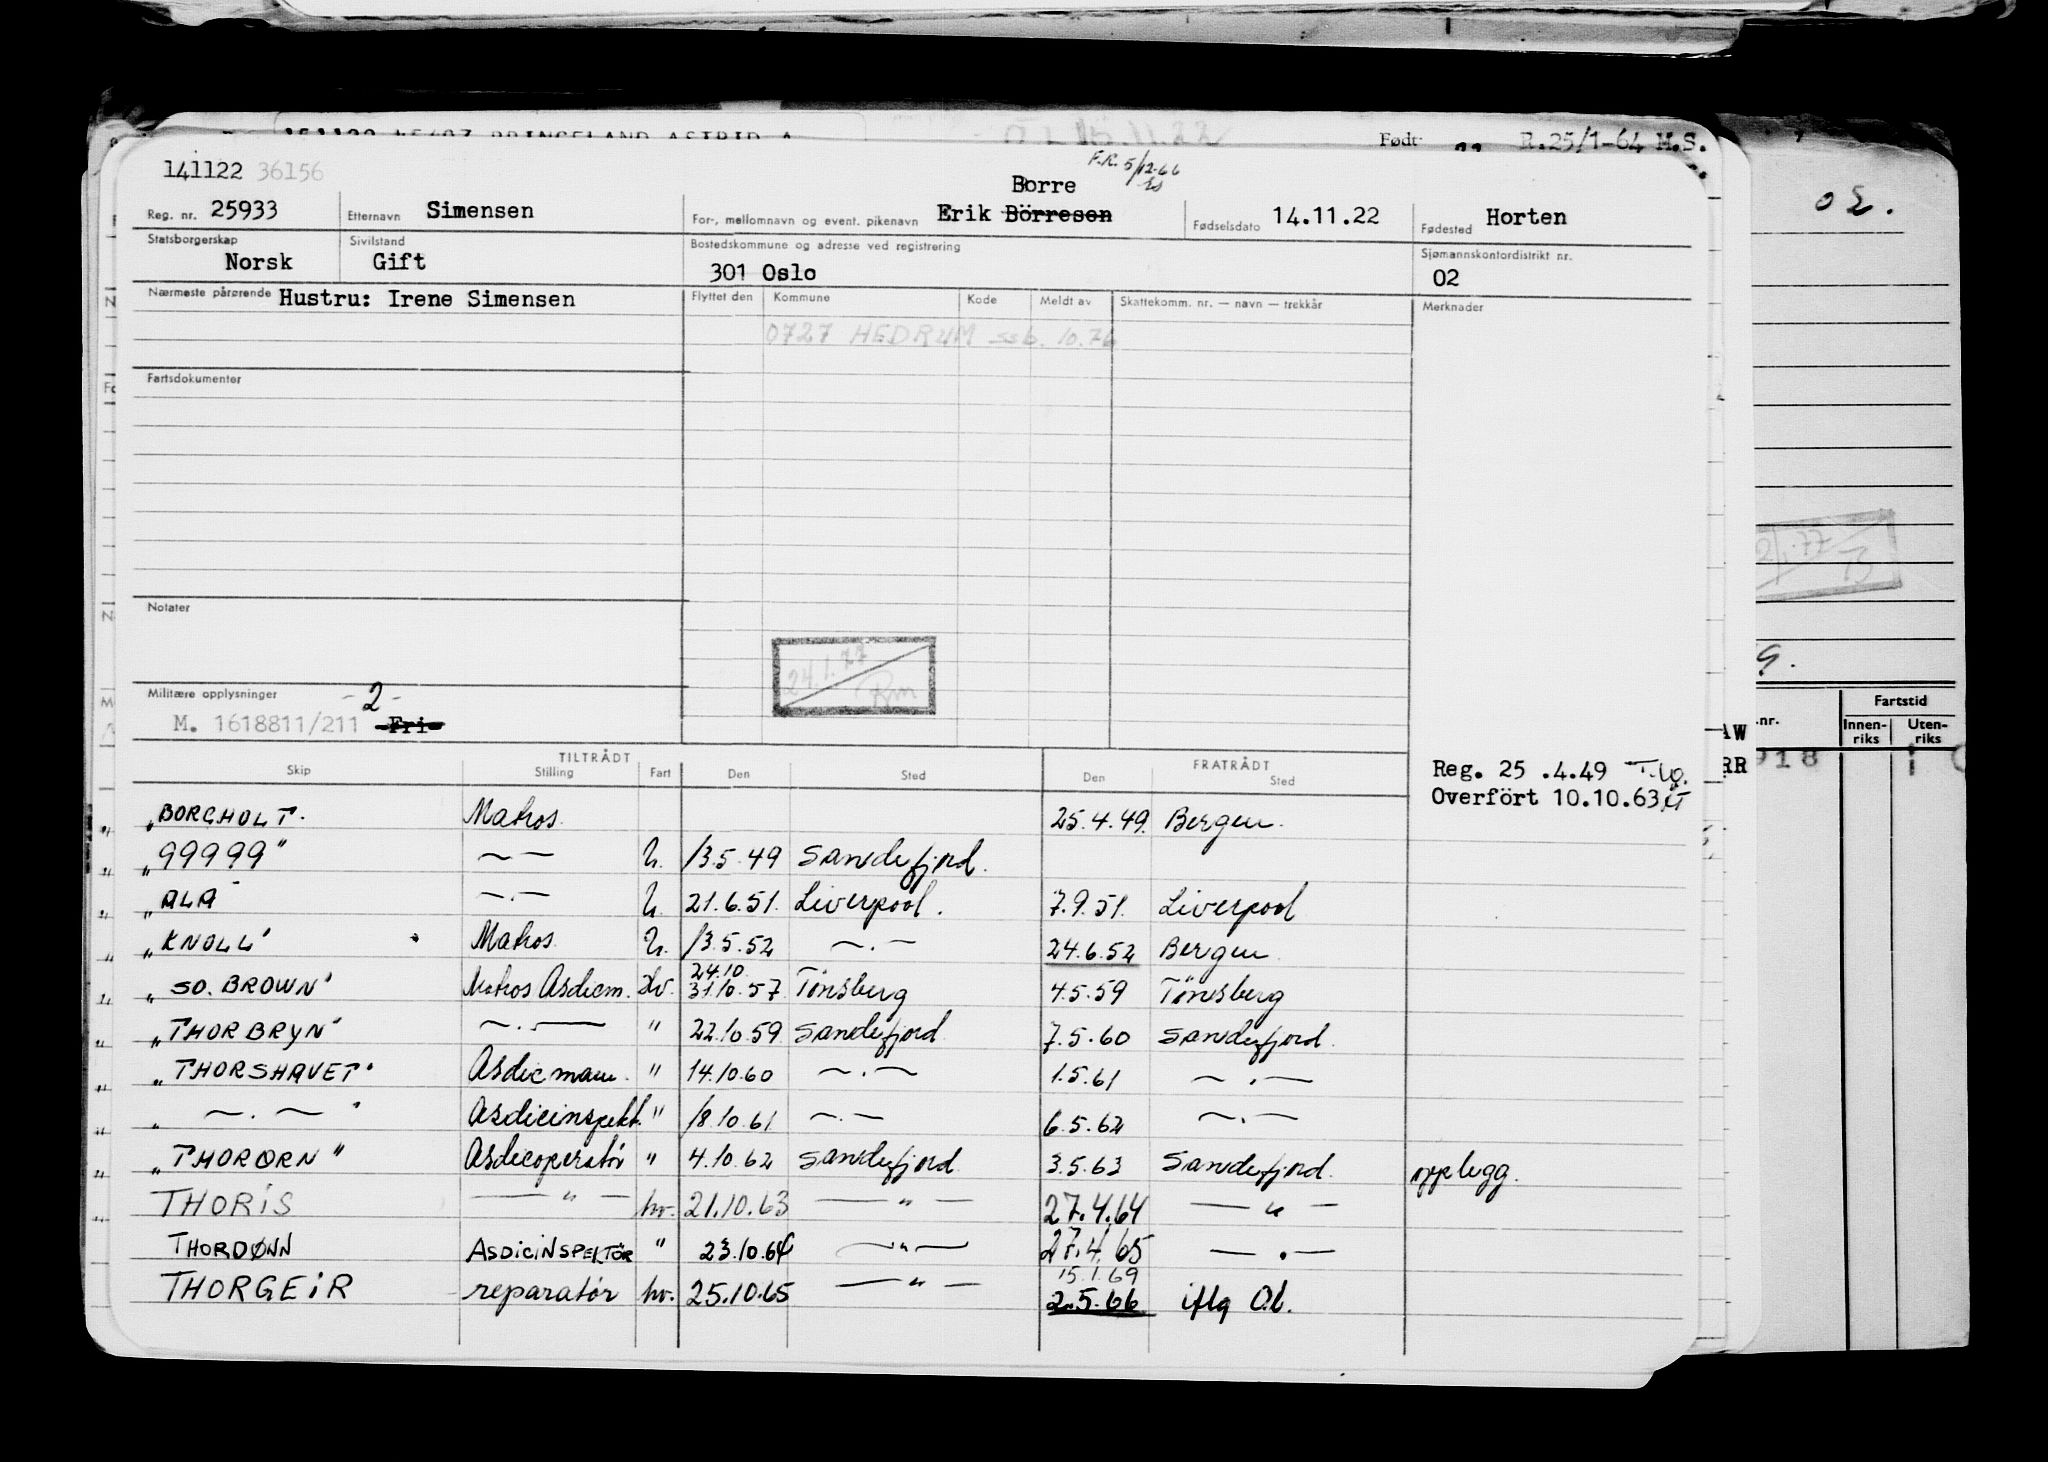 Født
R.25/1-64 M.S.
141122 36156
F.R. 5/12-66
Borre
Reg. nr. 25933 Etternavn Simensen For-, mellomnavn og event. pikenavn Erik Börresen Fødselsdato 14.11.22 Fødested Horten
Statsborgerskap Norsk Sivilstand Gift Bostedskommune og adresse ved registrering 301 Oslo Sjømannskontordistrikt nr. 02
Nærmeste pårørende Hustru: Irene Simensen Flyttet den Kommune Kode Meldt av Skattekomm. nr. — navn — trekkår Merknader
0727 HEDRUM ssb. 10.76
Fartsdokumenter
Notater
24.1.77
Rm
Militære opplysninger -2-
M. 1618811/211 Fri
TILTRÅDT FRATRÅDT
Skip Stilling Fart Den Sted Den Sted
Reg. 25 .4.49
Overfört 10.10.63
"BORGHOLT. Matros. 25.4.49. Bergen.
"99999" —〃— U. 13.5.49 Sandefjord.
"ALA" —.— U. 21.6.51. Liverpool. 7.9.51. Liverpool
"KNOLL" Matros. U. 13.5.52 —.— 24.6.52 Bergen
24.10
"SO. BROWN" Matros Asdicm. Hv. 31.10.57 Tönsberg 4.5.59 Tönsberg
"THORBRYN" —.— " 22.10.59 Sandefjord 7.5.60 Sandefjord.
"THORSHAVET" Asdicmann. " 14.10.60 —.— 1.5.61 —.—
" —.— " Asdicinspekt. " 18.10.61 —.— 6.5.62 —.—
"THORØRN" Asdicoperatör " 4.10.62 Sandefjord 3.5.63 Sandefjord. opplegg.
THORIS —"— hv. 21.10.63 —"— 27.4.64 —"—
THORDØNN ASDICINSPEKTÖR " 23.10.64 —"— 27.4.65 —.—
15.1.69
THORGEIR reparatør hv. 25.10.65 —"— 2.5.66 iflg O.l.
02.
Fartstid
Innen-riks Uten-riks